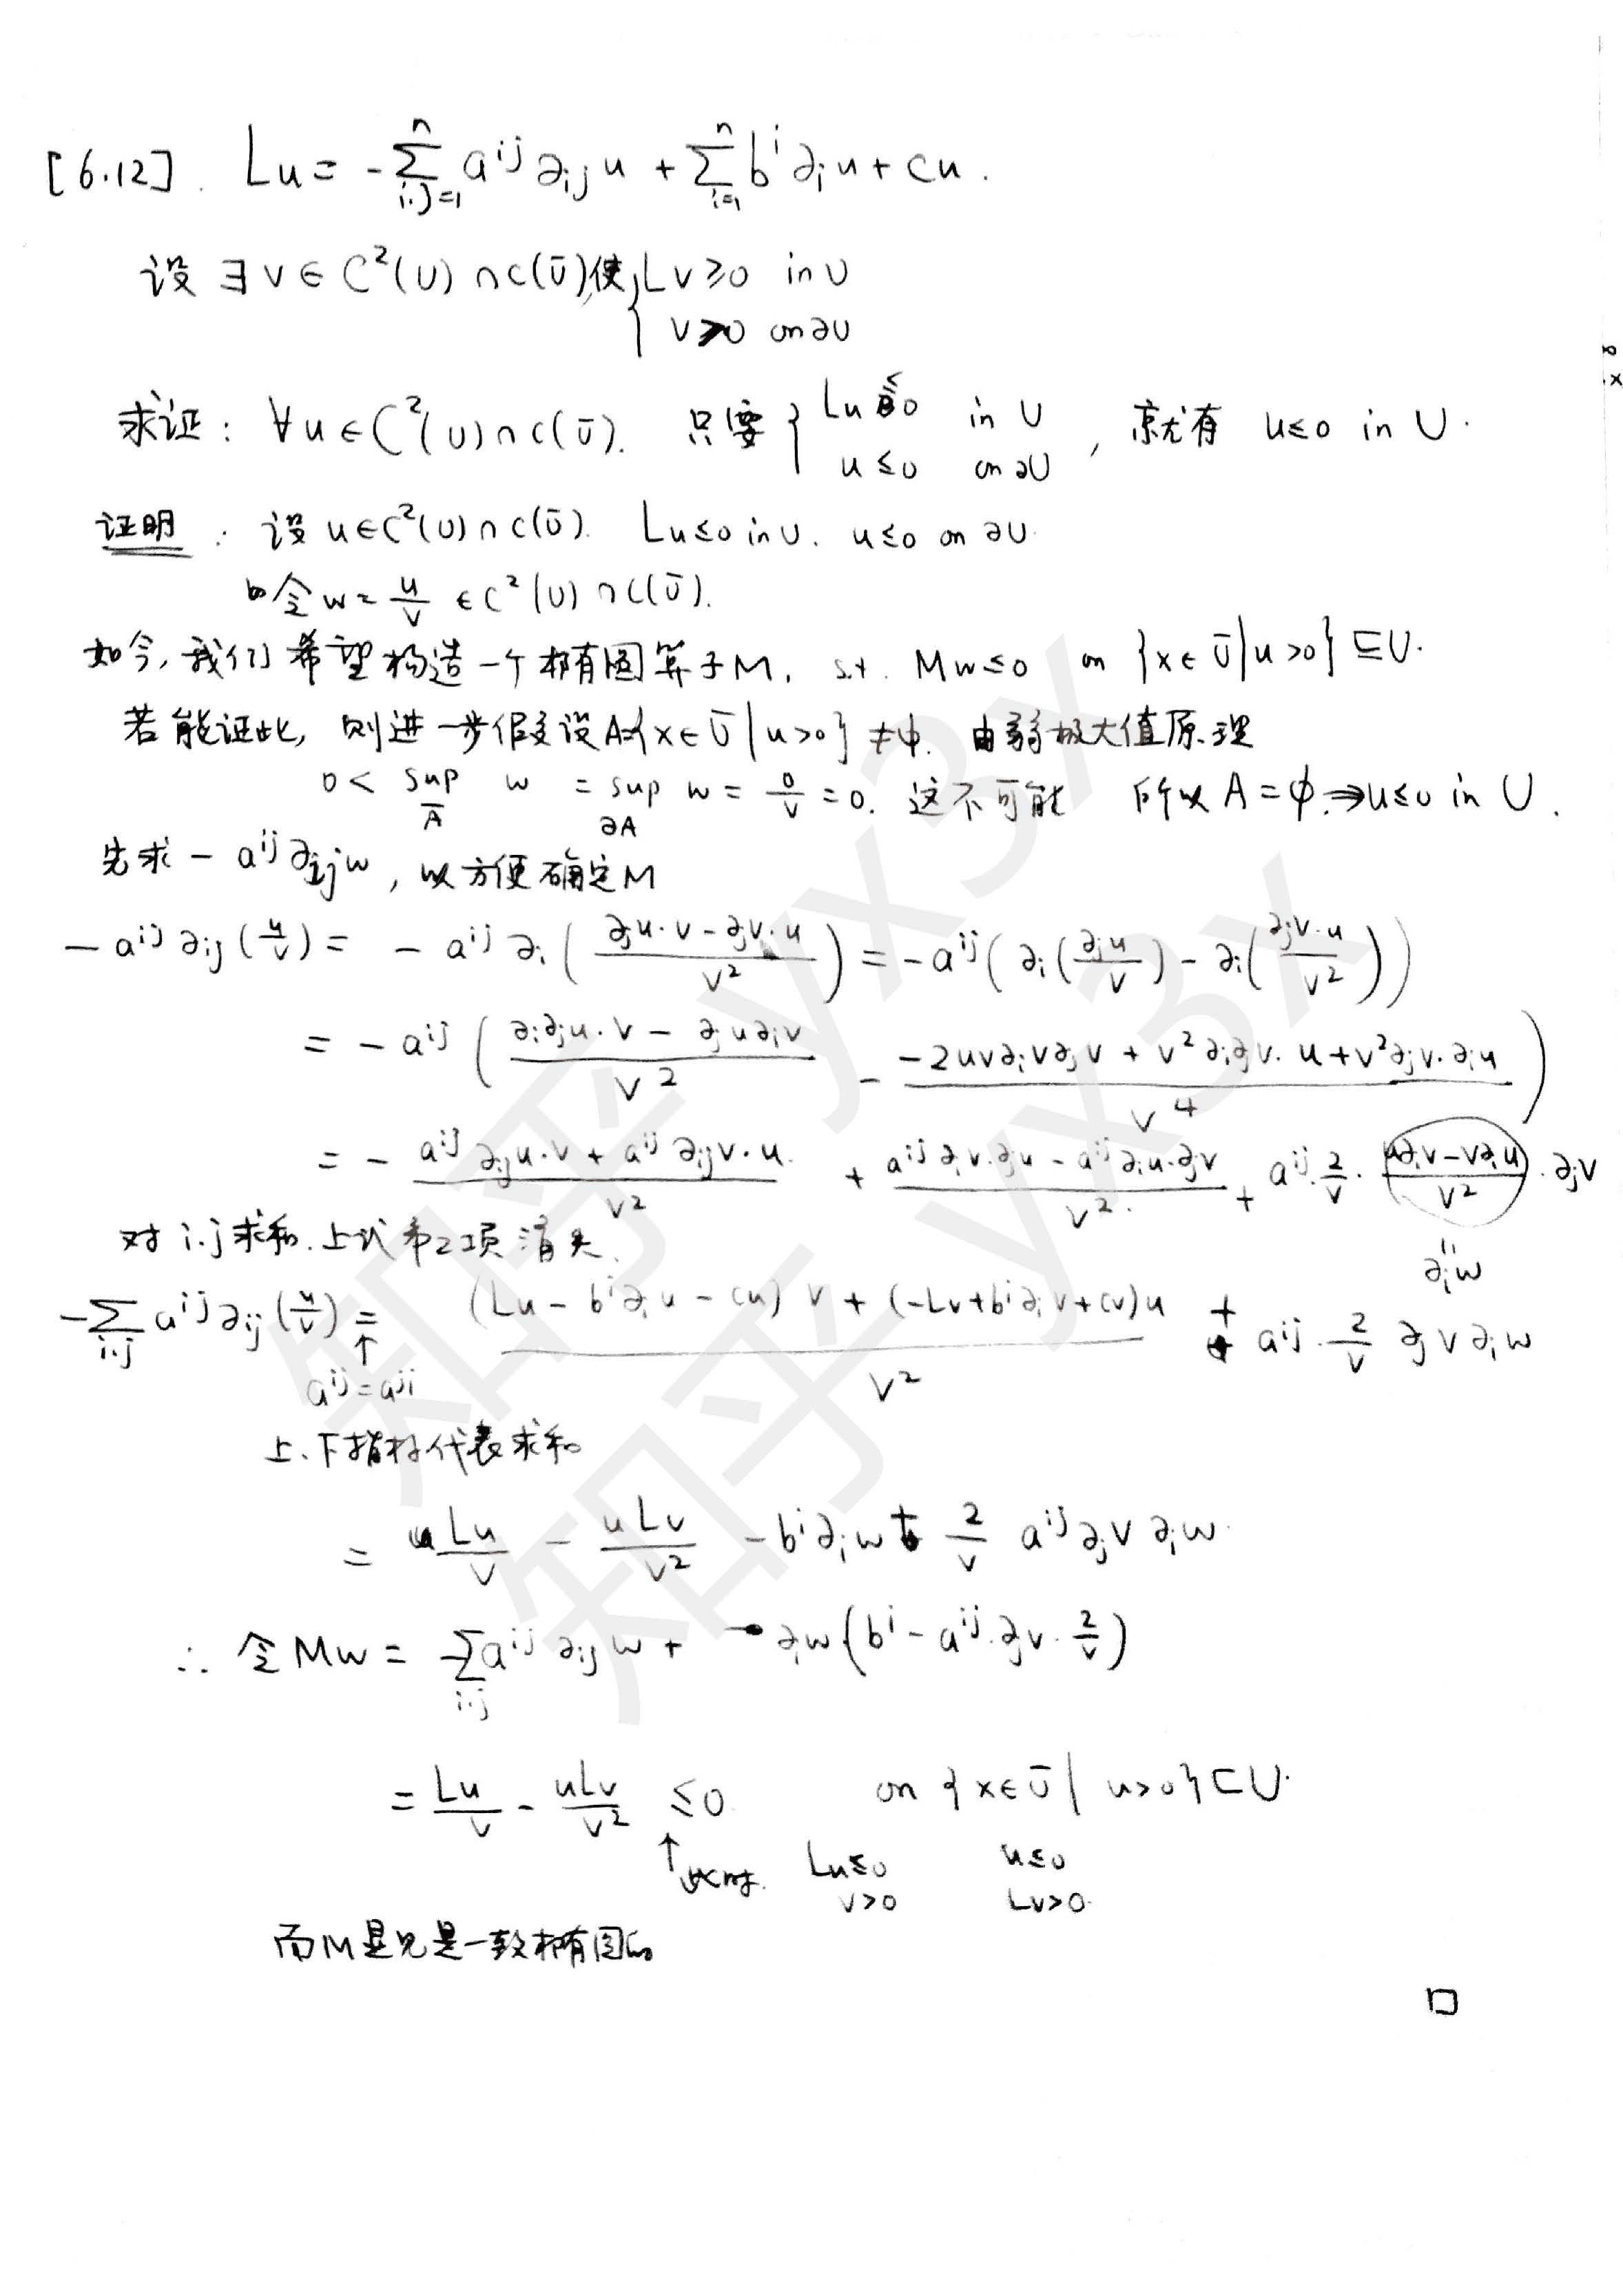 [6.12]. Lu = -∑_{i,j=1}^{n} a^{ij} ∂_{ij} u + ∑_{i=1}^{n} b^i ∂_i u + cu.
设 ∃ v ∈ C²(U) ∩ C(Ū), 使 { Lv ≥ 0 in U
v > 0 on ∂U
求证: ∀u ∈ C²(U) ∩ C(Ū). 只要 { Lu ≤ 0 in U , 就有 u ≤ 0 in U.
u ≤ 0 on ∂U
证明: 设 u ∈ C²(U) ∩ C(Ū). Lu ≤ 0 in U. u ≤ 0 on ∂U.
令 w = u/v ∈ C²(U) ∩ C(Ū).
如今, 我们希望构造一个椭圆算子M, s.t. Mw ≤ 0 on {x ∈ Ū | u > 0} ⊆ U.
若能证此, 则进一步假设 A={x ∈ Ū | u > 0} ≠ φ. 由弱极大值原理
0 < sup_{Ā} w = sup_{∂A} w = 0/v = 0. 这不可能 所以 A = φ. ⇒ u ≤ 0 in U.
先求 - a^{ij} ∂_{ij} w, 以方便确定M
- a^{ij} ∂_{ij} (u/v) = - a^{ij} ∂_i ( (∂_j u · v - ∂_j v · u) / v² ) = - a^{ij} ( ∂_i (∂_j u / v) - ∂_i (∂_j v · u / v²) )
= - a^{ij} ( (∂_i ∂_j u · v - ∂_j u ∂_i v) / v² - (-2uv ∂_i v ∂_j v + v² ∂_i ∂_j v · u + v² ∂_j v · ∂_i u) / v⁴ )
= - (a^{ij} ∂_{ij} u · v + a^{ij} ∂_{ij} v · u) / v² + (a^{ij} ∂_i v · ∂_j u - a^{ij} ∂_i u · ∂_j v) / v² + a^{ij} · 2/v · (u ∂_i v - v ∂_i u) / v² · ∂_j v
对 i.j 求和. 上式第2项消失.
∂_i w
-∑_{i,j} a^{ij} ∂_{ij} (u/v) = ((Lu - b^i ∂_i u - cu) v + (-Lv + b^i ∂_i v + cv) u) / v² + a^{ij} · 2/v ∂_j v ∂_i w
↑
a^{ij} = a^{ji}
上、下指标代表求和
= Lu/v - uLv/v² - b^i ∂_i w + 2/v a^{ij} ∂_j v ∂_i w.
∴ 令 Mw = -∑_{i,j} a^{ij} ∂_{ij} w + ∂_i w (b^i - a^{ij} · ∂_j v · 2/v)
= Lu/v - uLv/v² ≤ 0 on {x ∈ Ū | u > 0} ⊂ U.
↑ 此时. Lu ≤ 0 u ≤ 0
v > 0 Lv > 0.
而M显见是一致椭圆的
□